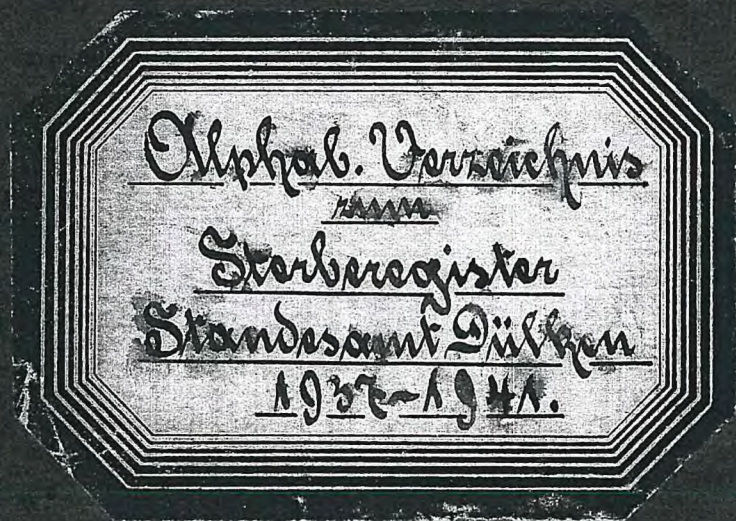 Alphab. Verzeichnis
zum
Sterberegister
Standesamt Dülken
1937-1941.